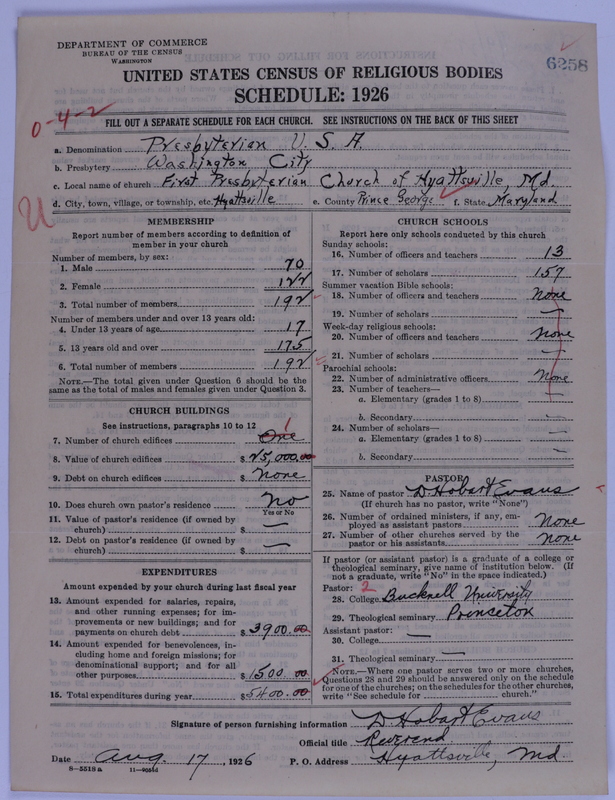 DEPARTMENT OF COMMERCE
BUREAU OF THE CENSUS
WASHINGTON
6258
UNITED STATES CENSUS OF RELIGIOUS BODIES
SCHEDULE: 1926
0-4-2
FILL OUT A SEPARATE SCHEDULE FOR EACH CHURCH. SEE INSTRUCTIONS ON THE BACK OF THIS SHEET
a. Denomination Presbyterian U. S. A.
b. Presbytery Washington City
c. Local name of church First Presbyterian Church of Hyattsville, Md.
d. City, town, village, or township, etc. Hyattsville e. County Prince George f. State Maryland
U
MEMBERSHIP
Report number of members according to definition of
member in your church
Number of members, by sex:
1. Male 70
2. Female 122
3. Total number of members 192
Number of members under and over 13 years old:
4. Under 13 years of age 17
5. 13 years old and over 175
6. Total number of members 192
NOTE.—The total given under Question 6 should be the
same as the total of males and females given under Question 3.
CHURCH BUILDINGS
See instructions, paragraphs 10 to 12
7. Number of church edifices One 1
8. Value of church edifices $ 25,000.00
9. Debt on church edifices $ None
10. Does church own pastor's residence No
Yes or No
11. Value of pastor's residence (if owned by
church) $ —
12. Debt on pastor's residence (if owned by
church) $ —
EXPENDITURES
Amount expended by your church during last fiscal year
13. Amount expended for salaries, repairs,
and other running expenses; for im-
provements or new building; and for
payments on church debt $ 3900.00
14. Amount expended for benevolences, in-
cluding home and foreign missions; for
denominational support; and for all
other purposes $ 1500.00
15. Total expenditures during year $ 5400.00
CHURCH SCHOOLS
Report here only schools conducted by this church
Sunday schools:
16. Number of officers and teachers 13
17. Number of scholars 157
Summer vacation Bible schools:
18. Number of officers and teachers None
19. Number of scholars —
Week-day religious schools:
20. Number of officers and teachers None
21. Number of scholars —
Parochial schools:
22. Number of administrative officers None
23. Number of teachers—
a. Elementary (grades 1 to 8) —
b. Secondary —
24. Number of scholars—
a. Elementary (grades 1 to 8) —
b. Secondary —
PASTOR
25. Name of pastor D. Hobart Evans
(If church has no pastor, write "None")
26. Number of ordained ministers, if any, em-
ployed as assistant pastors None
27. Number of other churches served by the
pastor or his assistants None
If pastor (or assistant pastor) is a graduate of a college or
theological seminary, give name of institution below. (If
not a graduate, write "No" in the space indicated.)
Pastor: 2
28. College Bucknell University
29. Theological seminary Princeton
Assistant pastor:
30. College —
31. Theological seminary —
NOTE.—Where one pastor serves two or more churches,
Questions 28 and 29 should be answered only on the schedule
for one of the churches; on the schedules for the other churches,
write "See schedule for church."
Signature of person furnishing information D Hobart Evans
Official title Reverend
Date Aug. 17, 1926 P. O. Address Hyattsville, Md.